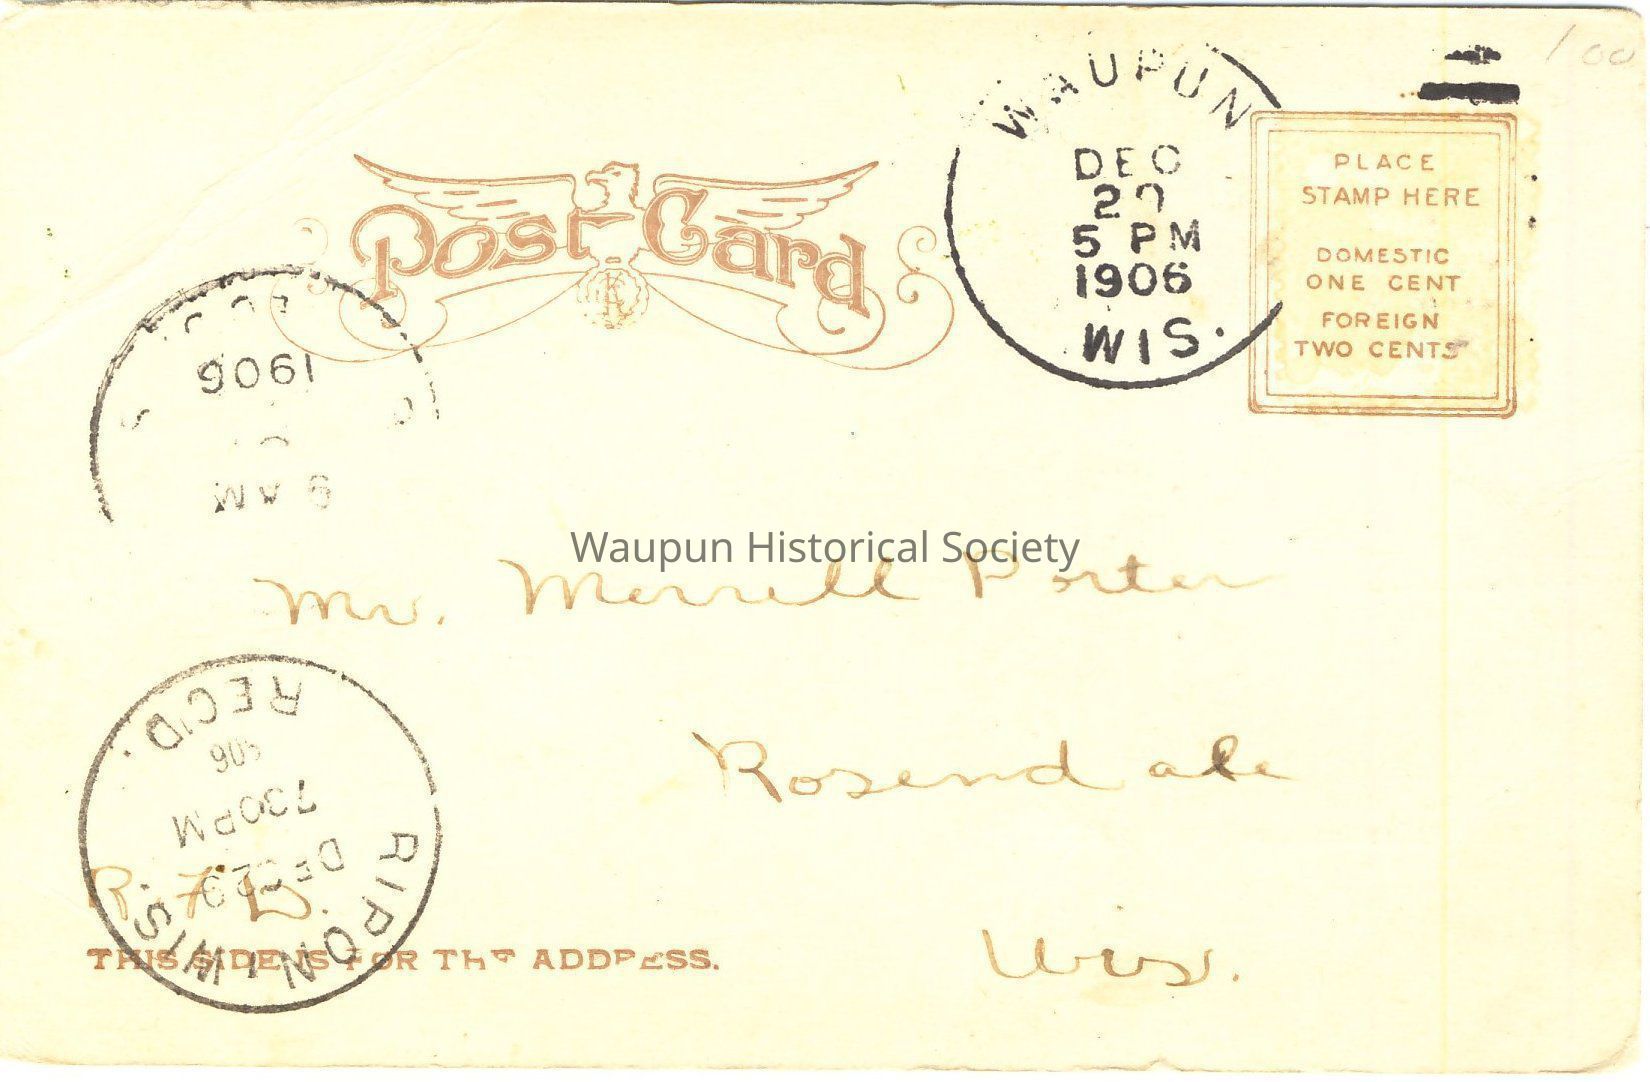 100
WAUPUN
DEC
29
5 PM
1906
WIS.
PLACE
STAMP HERE
DOMESTIC
ONE CENT
FOREIGN
TWO CENTS
Post Card
1906
9 AM
Waupun Historical Society
Mr. Merrell Porter
REC'D.
906
730PM
DEC29
RIPON, WIS.
Rosendale
R. F. D.
THIS SIDE IS FOR THE ADDRESS.
Wis.